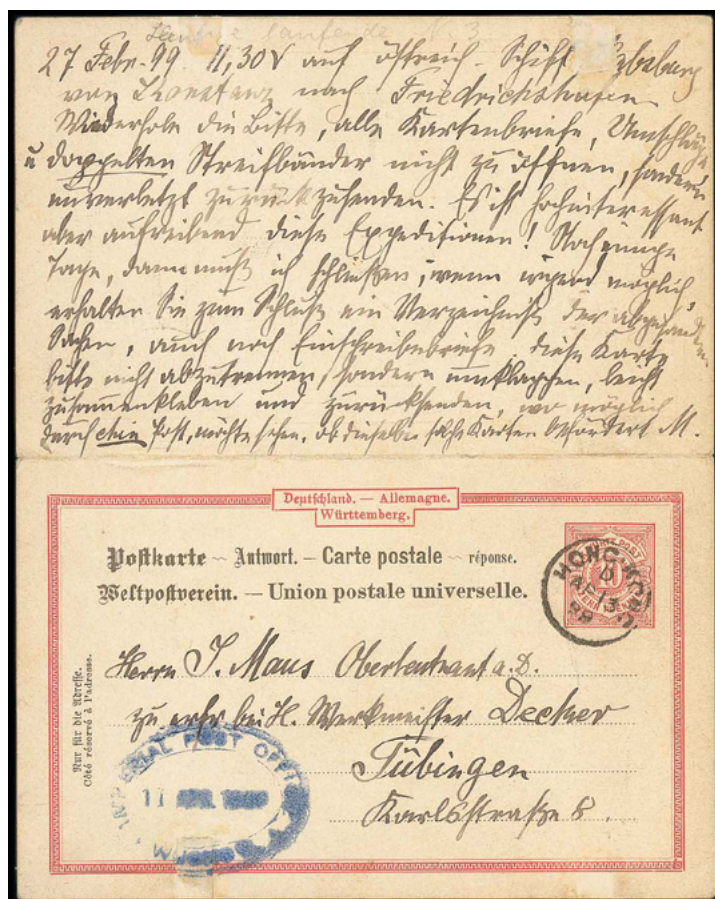 laufende
27 Febr. 99 11,30 V auf östreich. Schiff Habsburg
von Konstanz nach Friedrichshafen
Wiederhole die Bitte, alle Kartenbriefe, Umschläge
u doppelten Streifbänder nicht zu öffnen, sondern
unverletzt zurückzusenden. Es ist hochinteressant
aber aufreibend diese Expeditionen! Noch einige
Tage, dann muß ich schließen; wenn irgend möglich,
erhalten Sie zum Schluß ein Verzeichniß der abgesandten
Sachen, auch noch Einschreibebriefe diese Karte
bitte nicht abzutrennen, sondern umklappen, leicht
zusammenkleben und zurücksenden, wo möglich
durch chin Post, möchte sehen, ob dieselbe solche Karten befördert M.
Deutschland. — Allemagne.
Württemberg.
Postkarte ~ Antwort. – Carte postale ~ réponse.
Weltpostverein. — Union postale universelle.
HONG-KONG
D
AP 13
99
Nur für die Adresse.
Côté réservé à l'adresse.
Herrn J. Maus Oberleutnant a. D.
bei H. Werkmeister Decker
Tübingen
Karlstraße 8.
IMPERIAL POST OFFICE
11 APR